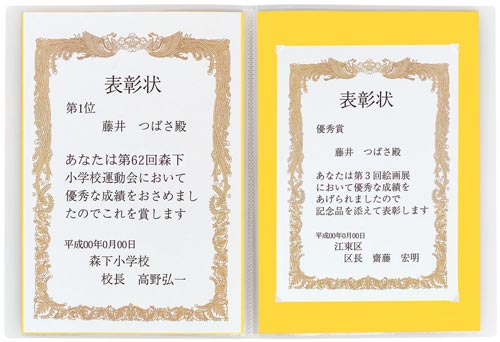 表彰状
第1位
藤井　つばさ殿
あなたは第62回森下
小学校運動会において
優秀な成績をおさめまし
たのでこれを賞します
平成00年0月00日
森下小学校
校長　高野弘一
表彰状
優秀賞
藤井　つばさ殿
あなたは第3回絵画展
において優秀な成績を
あげられましたので
記念品を添えて表彰します
平成00年0月00日
江東区
区長　齋藤　宏明